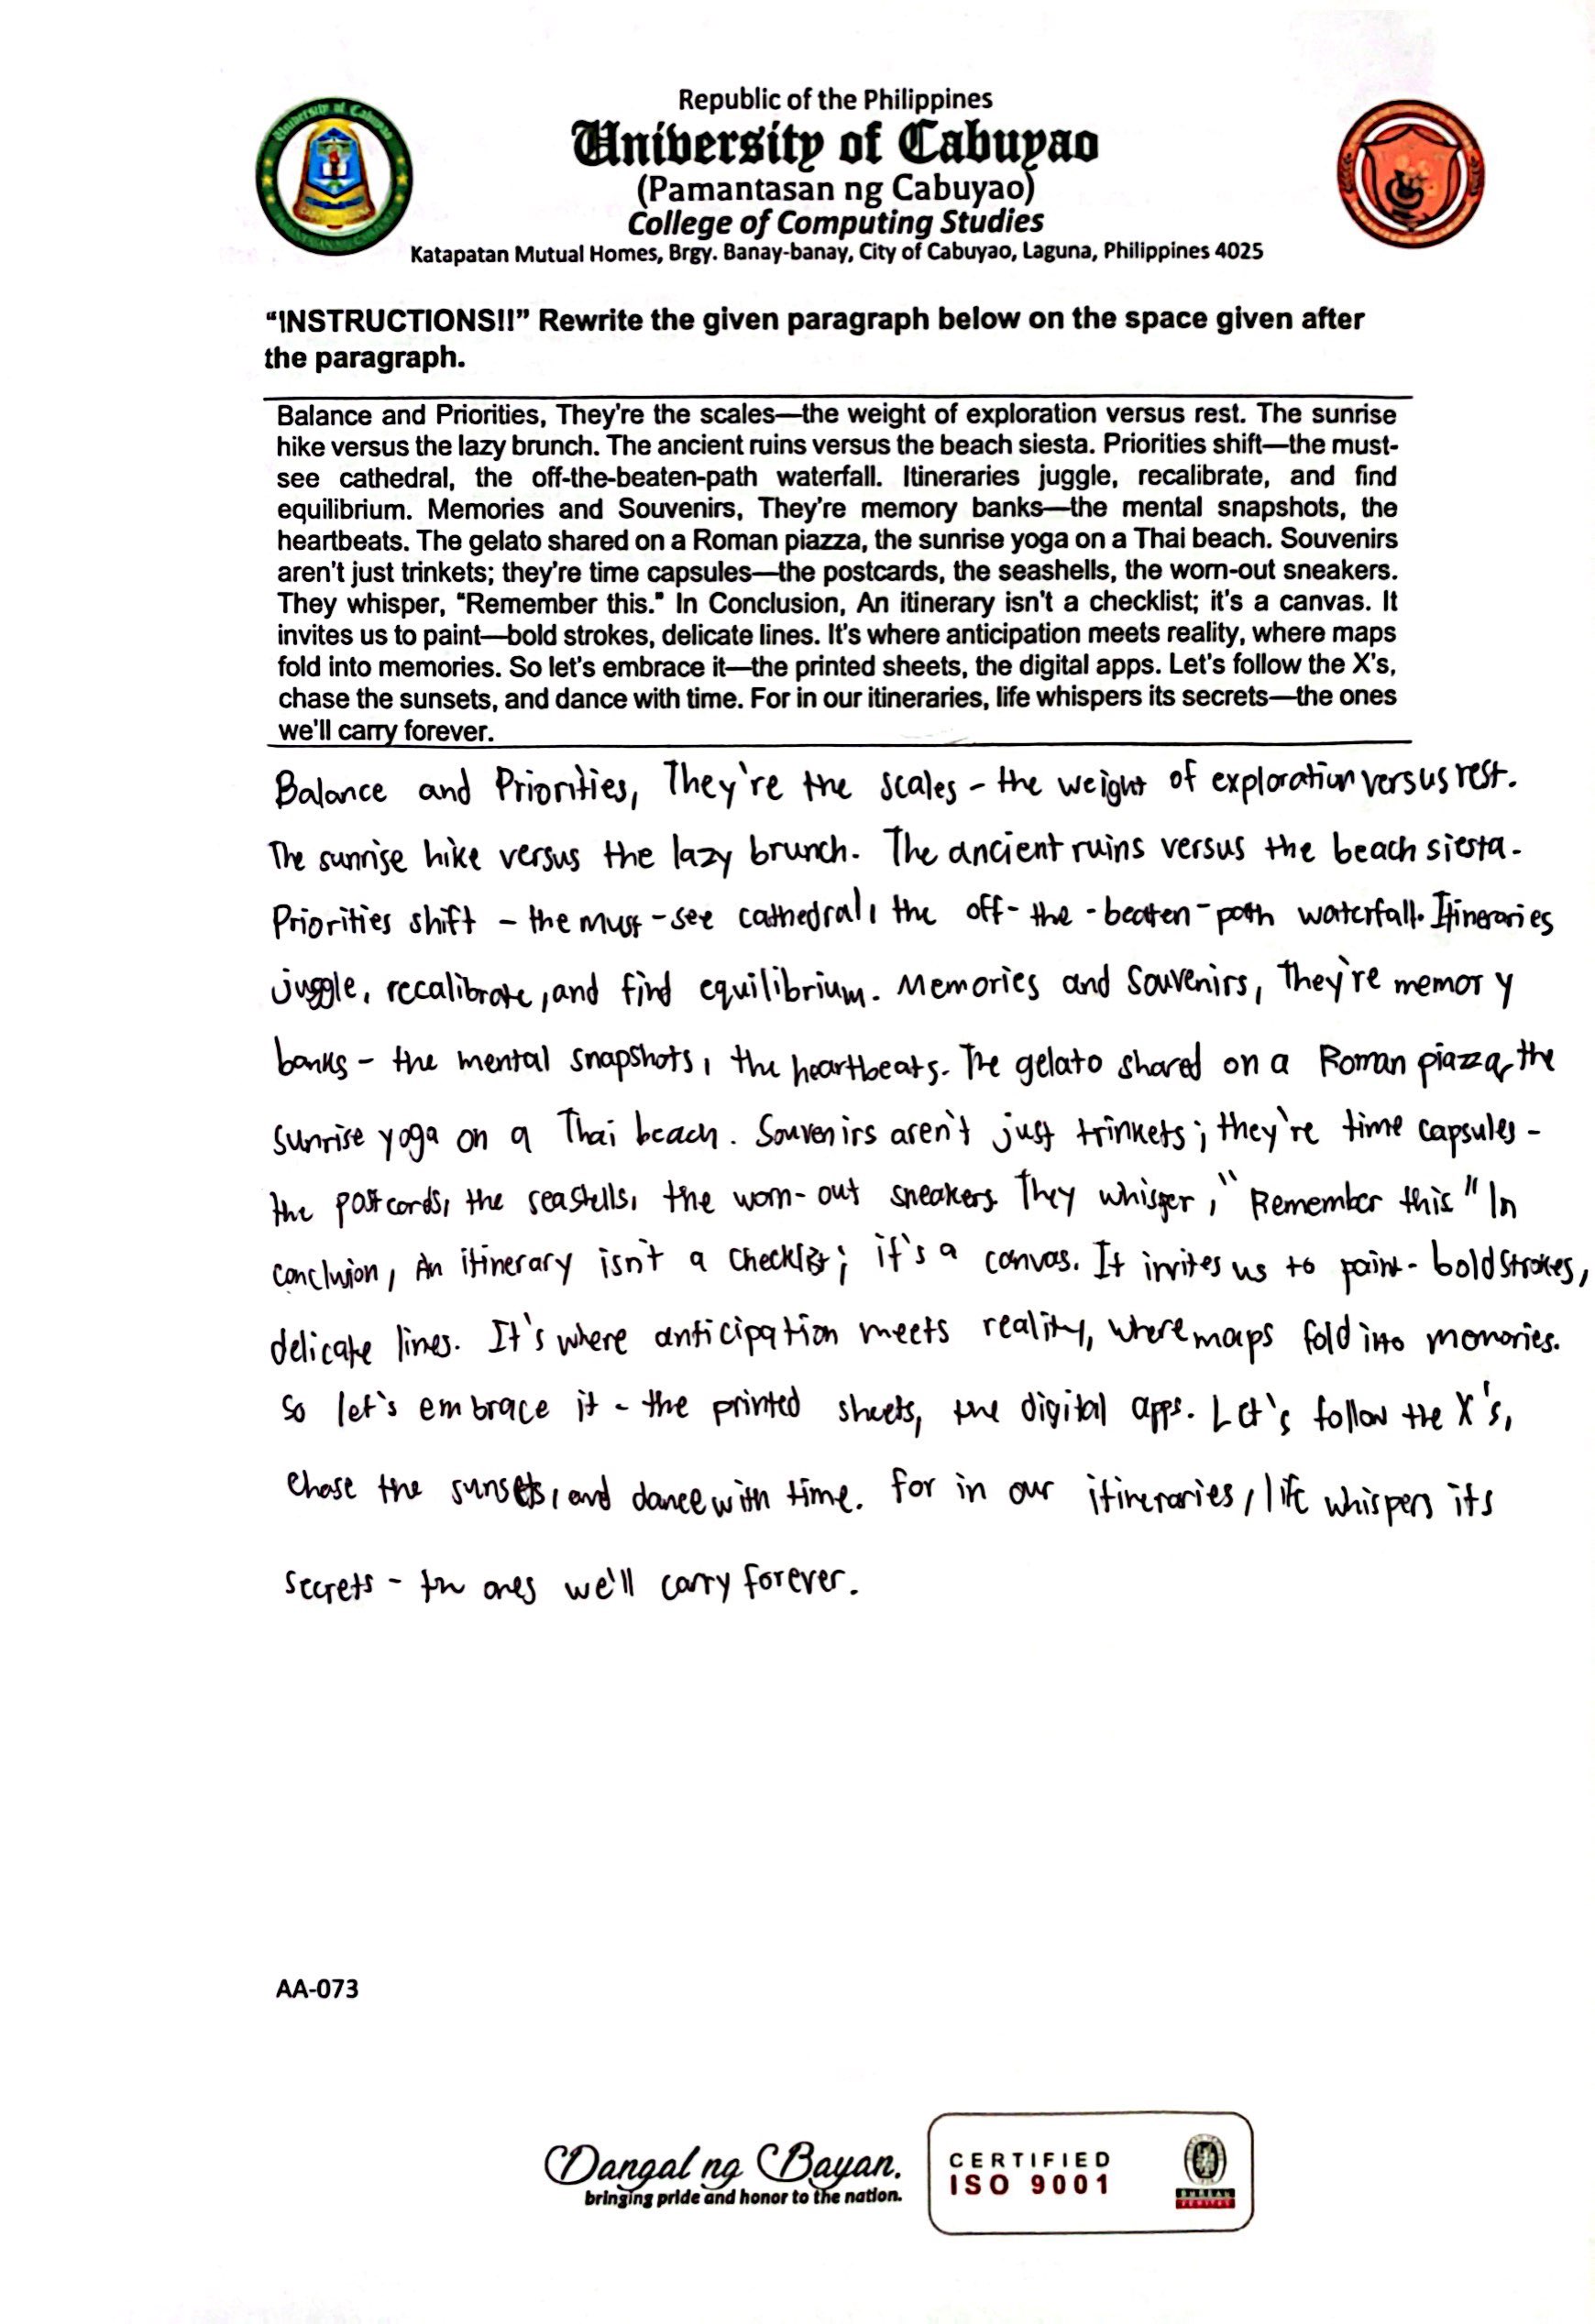 Republic of the Philippines
University of Cabuyao
(Pamantasan ng Cabuyao)
College of Computing Studies
Katapatan Mutual Homes, Brgy. Banay-banay, City of Cabuyao, Laguna, Philippines 4025
"INSTRUCTIONS!!" Rewrite the given paragraph below on the space given after
the paragraph.
Balance and Priorities, They're the scales—the weight of exploration versus rest. The sunrise
hike versus the lazy brunch. The ancient ruins versus the beach siesta. Priorities shift—the must-
see cathedral, the off-the-beaten-path waterfall. Itineraries juggle, recalibrate, and find
equilibrium. Memories and Souvenirs, They're memory banks—the mental snapshots, the
heartbeats. The gelato shared on a Roman piazza, the sunrise yoga on a Thai beach. Souvenirs
aren't just trinkets; they're time capsules—the postcards, the seashells, the worn-out sneakers.
They whisper, "Remember this." In Conclusion, An itinerary isn't a checklist; it's a canvas. It
invites us to paint—bold strokes, delicate lines. It's where anticipation meets reality, where maps
fold into memories. So let's embrace it—the printed sheets, the digital apps. Let's follow the X's,
chase the sunsets, and dance with time. For in our itineraries, life whispers its secrets—the ones
we'll carry forever.
Balance and Priorities, They're the scales - the weight of exploration versus rest.
The sunrise hike versus the lazy brunch. The ancient ruins versus the beach siesta.
Priorities shift - the must-see cathedral, the off-the-beaten-path waterfall. Itineraries
juggle, recalibrate, and find equilibrium. Memories and Souvenirs, They're memory
banks - the mental snapshots, the heartbeats. The gelato shared on a Roman piazza, the
sunrise yoga on a Thai beach. Souvenirs aren't just trinkets; they're time capsules -
the postcards, the seashells, the worn-out sneakers. They whisper, "Remember this" In
conclusion, An itinerary isn't a checklist; it's a canvas. It invites us to paint - bold strokes,
delicate lines. It's where anticipation meets reality, where maps fold into memories.
So let's embrace it - the printed sheets, the digital apps. Let's follow the X's,
chase the sunsets, and dance with time. For in our itineraries, life whispers its
secrets - the ones we'll carry forever.
AA-073
Dangal ng Bayan.
bringing pride and honor to the nation.
CERTIFIED
ISO 9001
BUREAU
VERITAS